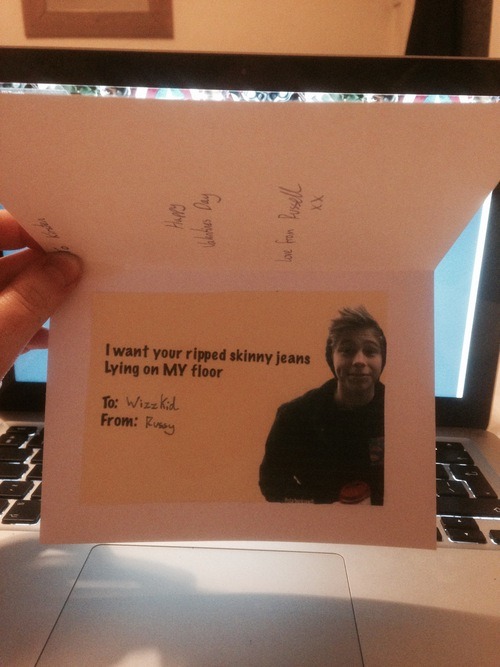 Happy
Valentines Day
Love from Russell
xx
I want your ripped skinny jeans
Lying on MY floor
To: WizzKid
From: Russy